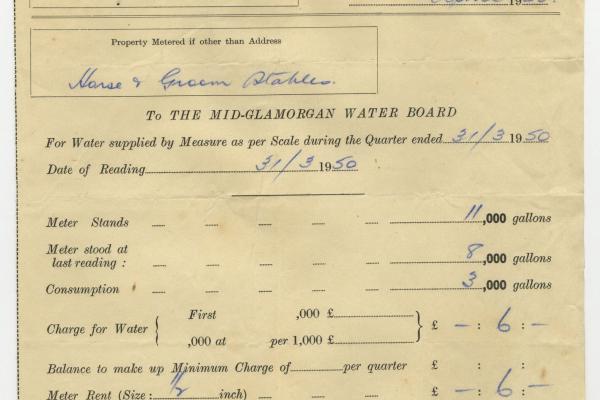 1950.
Property Metered if other than Address
Horse & Groom Stables.
To THE MID-GLAMORGAN WATER BOARD
For Water supplied by Measure as per Scale during the Quarter ended 31/3 1950
Date of Reading 31/3 1950
Meter Stands 11,000 gallons
Meter stood at
last reading : 8,000 gallons
Consumption 3,000 gallons
First ,000 £
Charge for Water { } £ – : 6 : –
,000 at per 1,000 £
Balance to make up Minimum Charge of per quarter £ : :
Meter Rent (Size : 1/2 inch) £ – : 6 : –